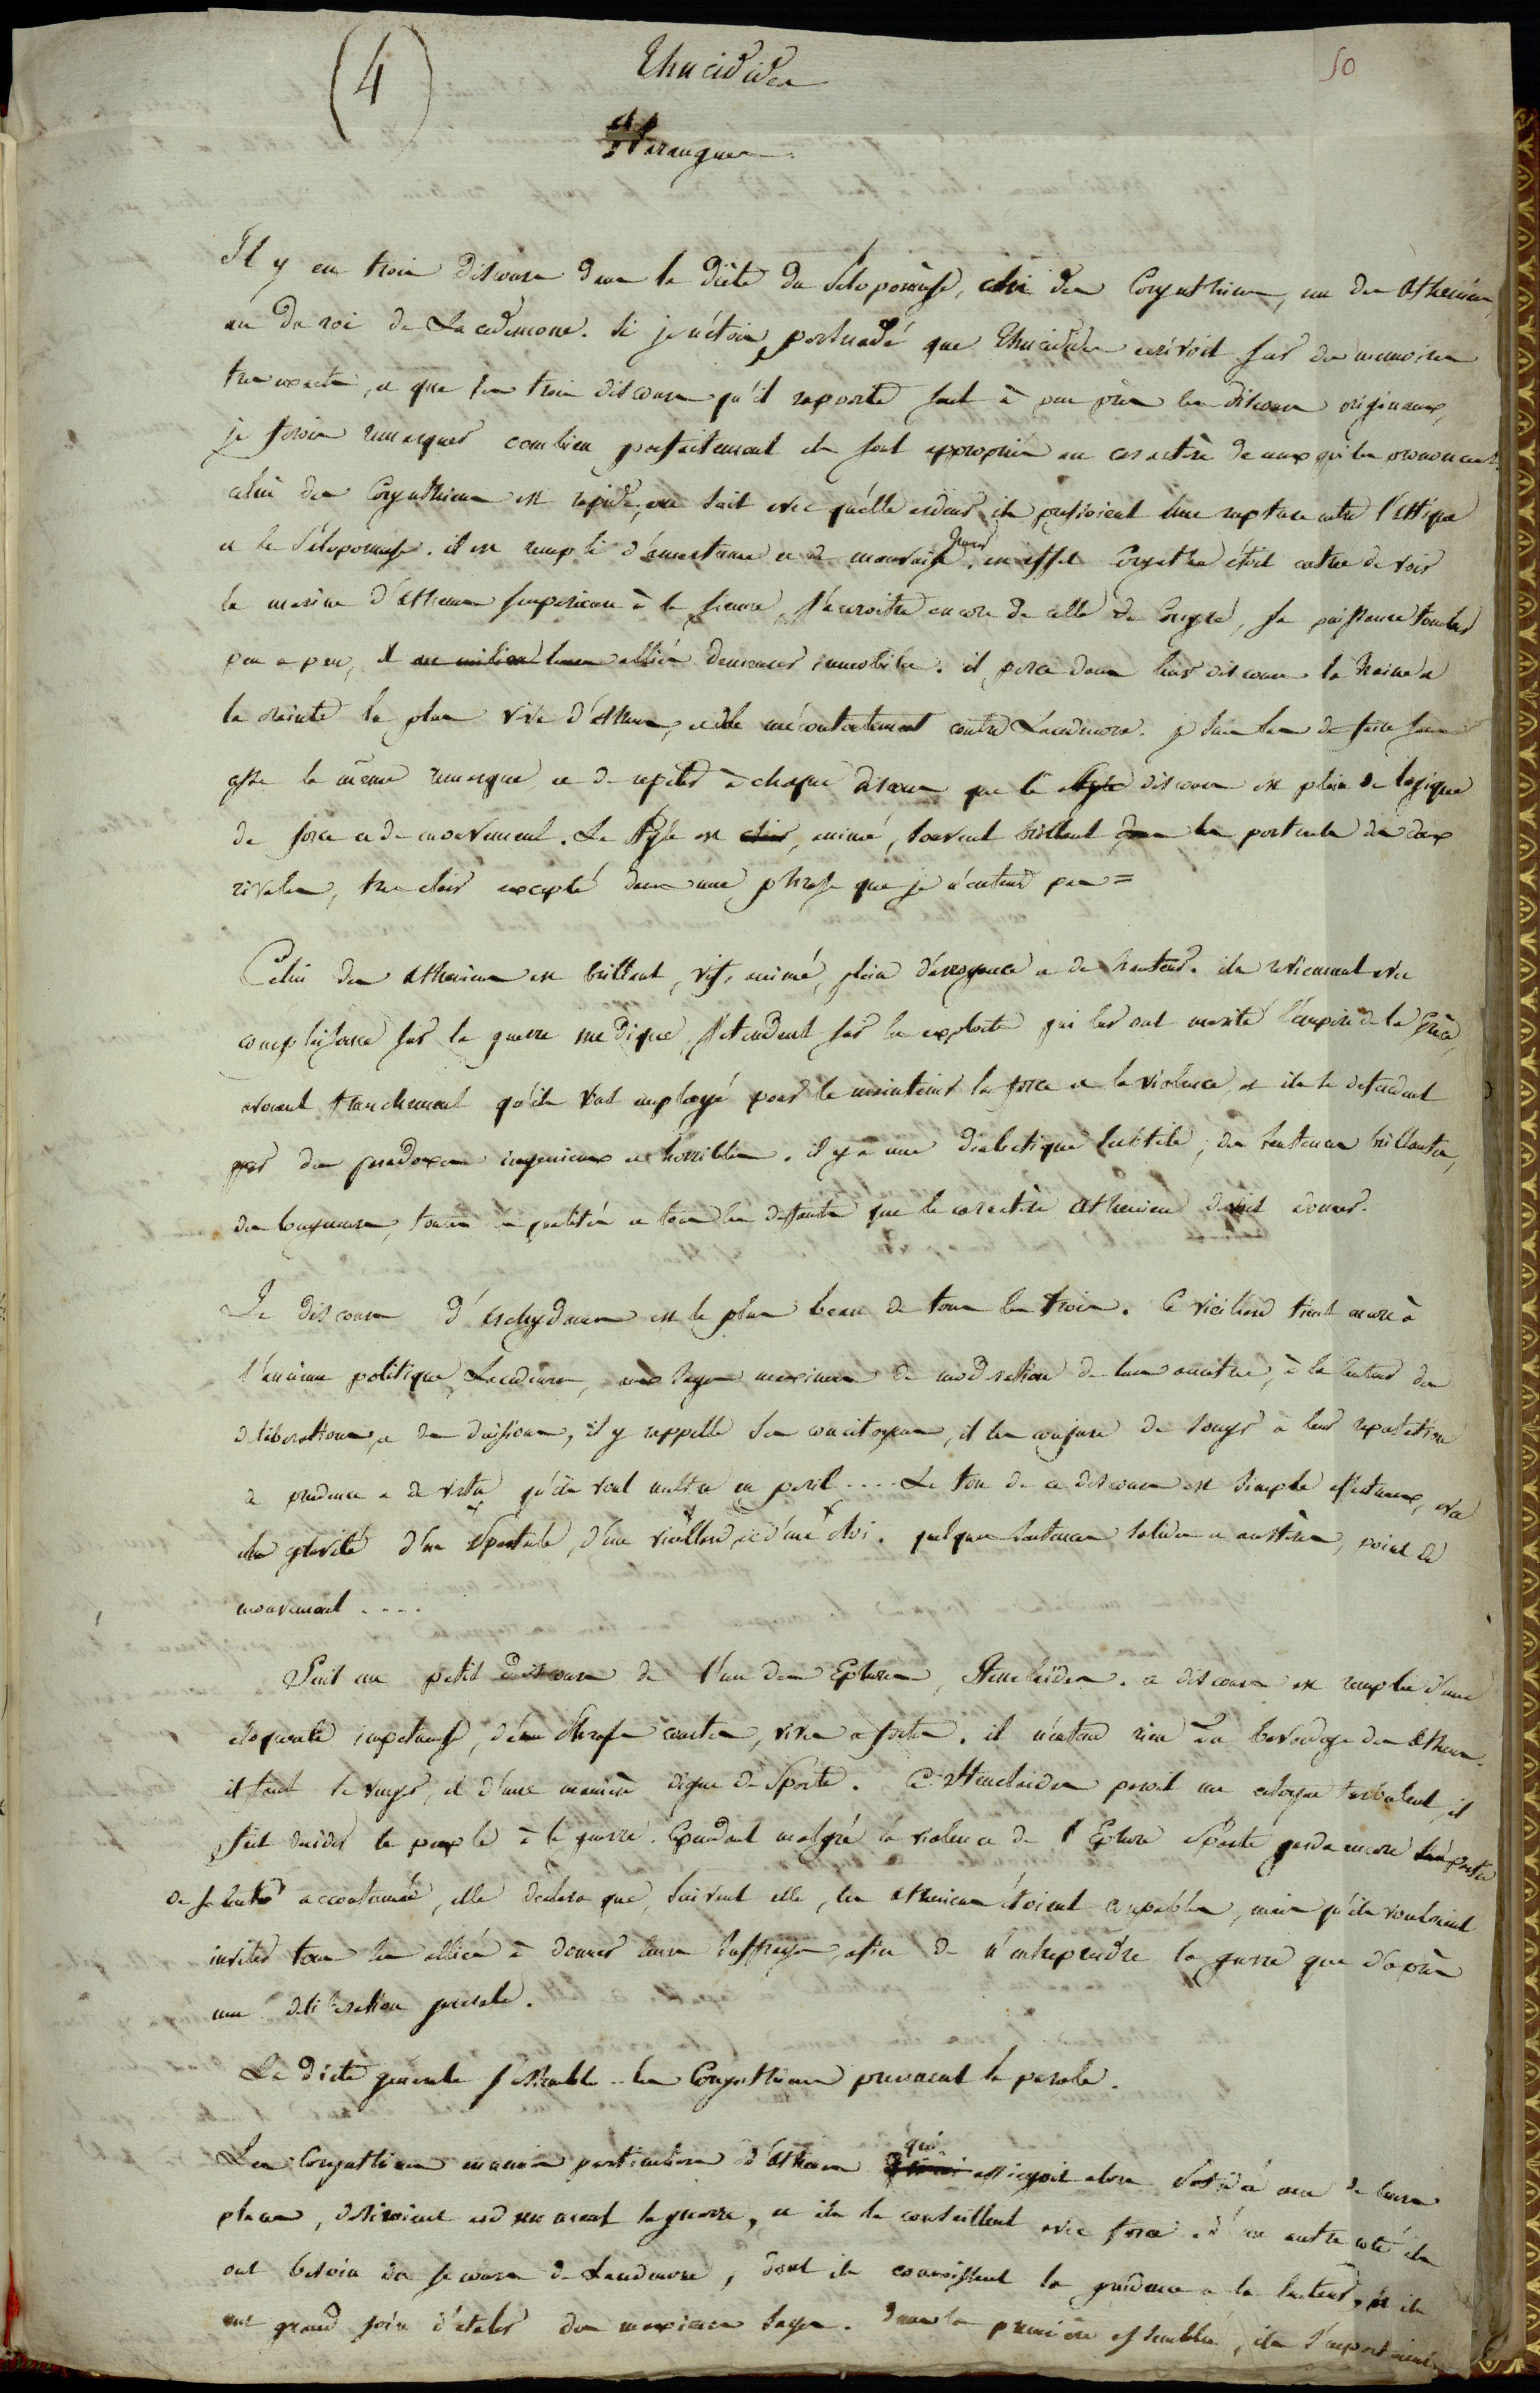 (4)
Thucidides
50
Harangues
Il y eu trois discours dans la diète du Péloponèse, celui des Corynthiens, un des Atheniens,
un du roi de Lacedemone. Si je n'étois persuadé que Thucidides ecrivoit sur des memoires
tres exacts, et que les trois discours qu'il raporte sont à peu près les discours originaux,
je ferois remarquer combien parfaitement ils sont appropriés au caractère de ceux qui les prononcent.
celui des Corynthiens est rapide, on sait avec quelle ardeur ils pressoient une rupture entre l'Attique
et le Péloponnese. il est rempli d'amertume et de mauvaise humeur. en effet Corynthe étoit outrée de voir
la marine d'Athenes superieure à la sienne, s'accroitre encore de celle de Corcyre, sa puissance tomber
peu a peu, et alliés demeurer immobiles. il perce dans leur discours la haine et
la crainte la plus vive d'Athenes, et de mécontentement contre Lacedemone. je suis las de faire sans
cesse la même remarque et de repeter à chaque discours que le discours est plein de logique
de force et de mouvement. Le style est animé, souvent brillant les portraits des deux
rivales, tres clair excepté dans une phrase que je n'entend pas =
Celui des Atheniens est brillant, vif, animé, plein d'arrogance et de hauteur. ils reviennent avec
complaisance sur la guerre medique, s'etendent sur les exploits qui leur ont merité l'empire de la Grèce,
avouent franchement qu'ils ont employé pour le maintenir la force et la violence, et ils se defendent
par des paradoxes ingenieux et horribles. il y a une dialectique subtile, des sentences brillantes,
des longueurs, toutes les qualités et tous les deffauts que le caractère Athenien devoit donner.
Le discours d'Archydamus est le plus beau de tous les trois. Ce vieillard tient encore à
l'ancienne politique Lacedemone, aux sages maximes de moderation de leurs ancetres, à la lenteur des
deliberations et des decisions, il y rappelle ses concitoyens, il les conjure de songer à leur reputation
de prudence et de vertu qu'ils vont mettre en peril .... Le ton de ce discours est simple et
la gravité d'un Spartiate, d'un vieillard, et d'un Roi. quelques sentences solides et austères, point de
mouvement ....
Suit un petit discours de l'un des Ephores, Stenelaides. ce discours est rempli d'une
eloquence impetueuse, de phrases courtes, vives et fortes. il n'entend rien au bavardage des Atheniens
il faut se venger, et d'une manière digne de Sparte. Ce Stenelaides paroit un citoyen turbulent, il
fait decider le peuple à la guerre. Cependant malgré la violence de l'Ephore Sparte garda encore
de sa lenteur accoutumée, elle declara que, suivant elle, les Atheniens étoient coupables, mais qu'ils voudroient
inviter tous les alliés à donner leurs suffrages, afin de n'entreprendre la guerre que d'après
une deliberation generale.
La diète generale s'assemble .. les Corynthiens prennent la parole.
Les Corynthiens ennemis particuliers d'Athenes qui assiegoit alors Potidée une de leurs
places, desiroient ardemment la guerre, et ils la conseillent avec force. d'un autre coté ils
ont besoin du secours de Lacedemone, dont ils connoissent la prudence et la lenteur, et ils
ont grand soin d'etaler des maximes sages. Dans la premiere assemblée, ils s'emportoient